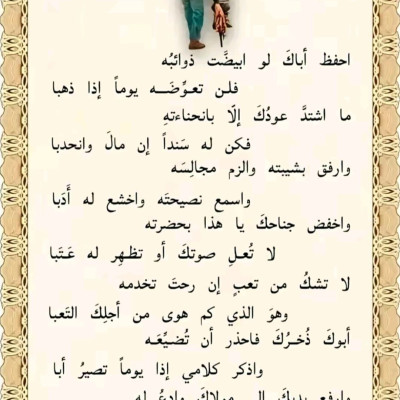 احفظ أباكَ لو ابيضَّت ذوائبُه
فلـن تعـوِّضَـــه يوماً إذا ذهبا
ما اشتدَّ عودُكَ إلّا بانحناءتهِ
فكن له سَنداً إن مالَ وانحدبا
وارفق بشيبته والزم مجالِسَه
واسمع نصيحتَه واخشع له أَدَبا
واخفض جناحكَ يا هذا بحضرته
لا تُعـلِ صوتكَ أو تظـهِر له عَـتَبا
لا تشكُ من تعبٍ إن رحتَ تخدمه
وهوَ الذي كم هوى من أجلِكَ التَعبا
أبوكَ ذُخـرُكَ فاحذر أن تُضـيِّعَـه
واذكر كلامي إذا يوماً تصيرُ أبا
وارفع يديكَ إلى مولاكَ وادعُ له